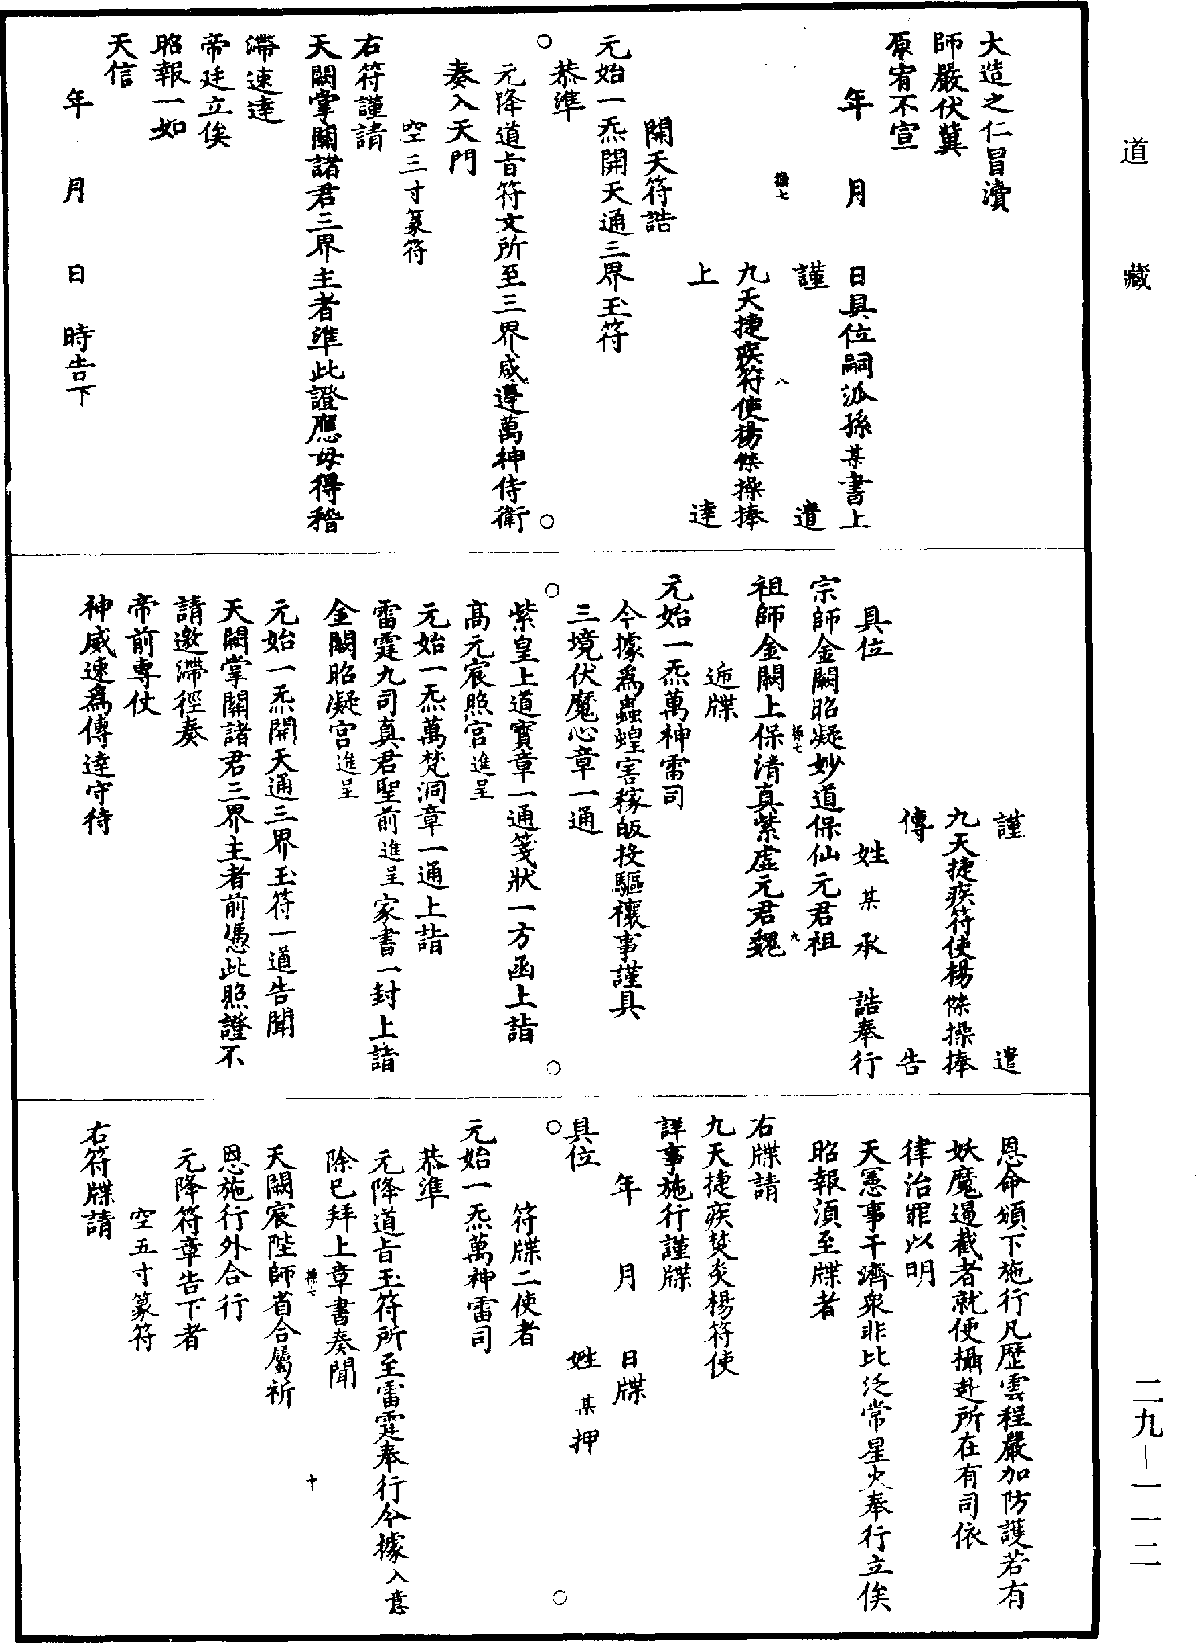 道藏
大造之仁冒瀆
師嚴伏冀
原宥不宣
年　月　日具位嗣派孫某書上
謹　遣
九天捷疾符使楊傑操捧
上　達
開天符誥
元始一炁開天通三界玉符
恭準
元降道旨符文所至三界咸遵萬神侍衛
奏入天門
空三寸篆符
右符謹請
天闕掌關諸君三界主者準此證應毋得稽
滯速達
帝廷立俟
昭報一如
天信
年　月　日　時告下
謹　遣
九天捷疾符使楊傑操捧
傳　告
具位　姓某承　誥奉行
宗師金闕昭凝妙道保仙元君祖
祖師金闕上保清真紫虛元君魏
遞牒
元始一炁萬神雷司
今據爲蟲蝗害稼皈投驅禳事謹具
三境伏魔心章一通
紫皇上道寶章一通箋狀一方函上詣
高元宸照宮進呈
元始一炁萬梵洞章一通上詣
雷霆九司真君聖前進呈家書一封上詣
金闕昭凝宮進呈
元始一炁開天通三界玉符一道告聞
天闕掌關諸君三界主者前憑此照證不
請邀滯徑奏
帝前專仗
神威速爲傳達守待
恩命頒下施行凡歷雲程嚴加防護若有
妖魔邀截者就便攝赴所在有司依
律治罪以明
天憲事干濟衆非比泛常星火奉行立俟
昭報須至牒者
右牒請
九天捷疾焚炎楊符使
詳事施行謹牒
年　月　日牒
具位　姓某押
符牒二使者
元始一炁萬神雷司
恭準
元降道旨玉符所至雷霆奉行今據入意
除已拜上章書奏聞
天闕宸陛師省合屬祈
恩施行外合行
元降符章告下者
空五寸篆符
右符牒請
二九－一一二